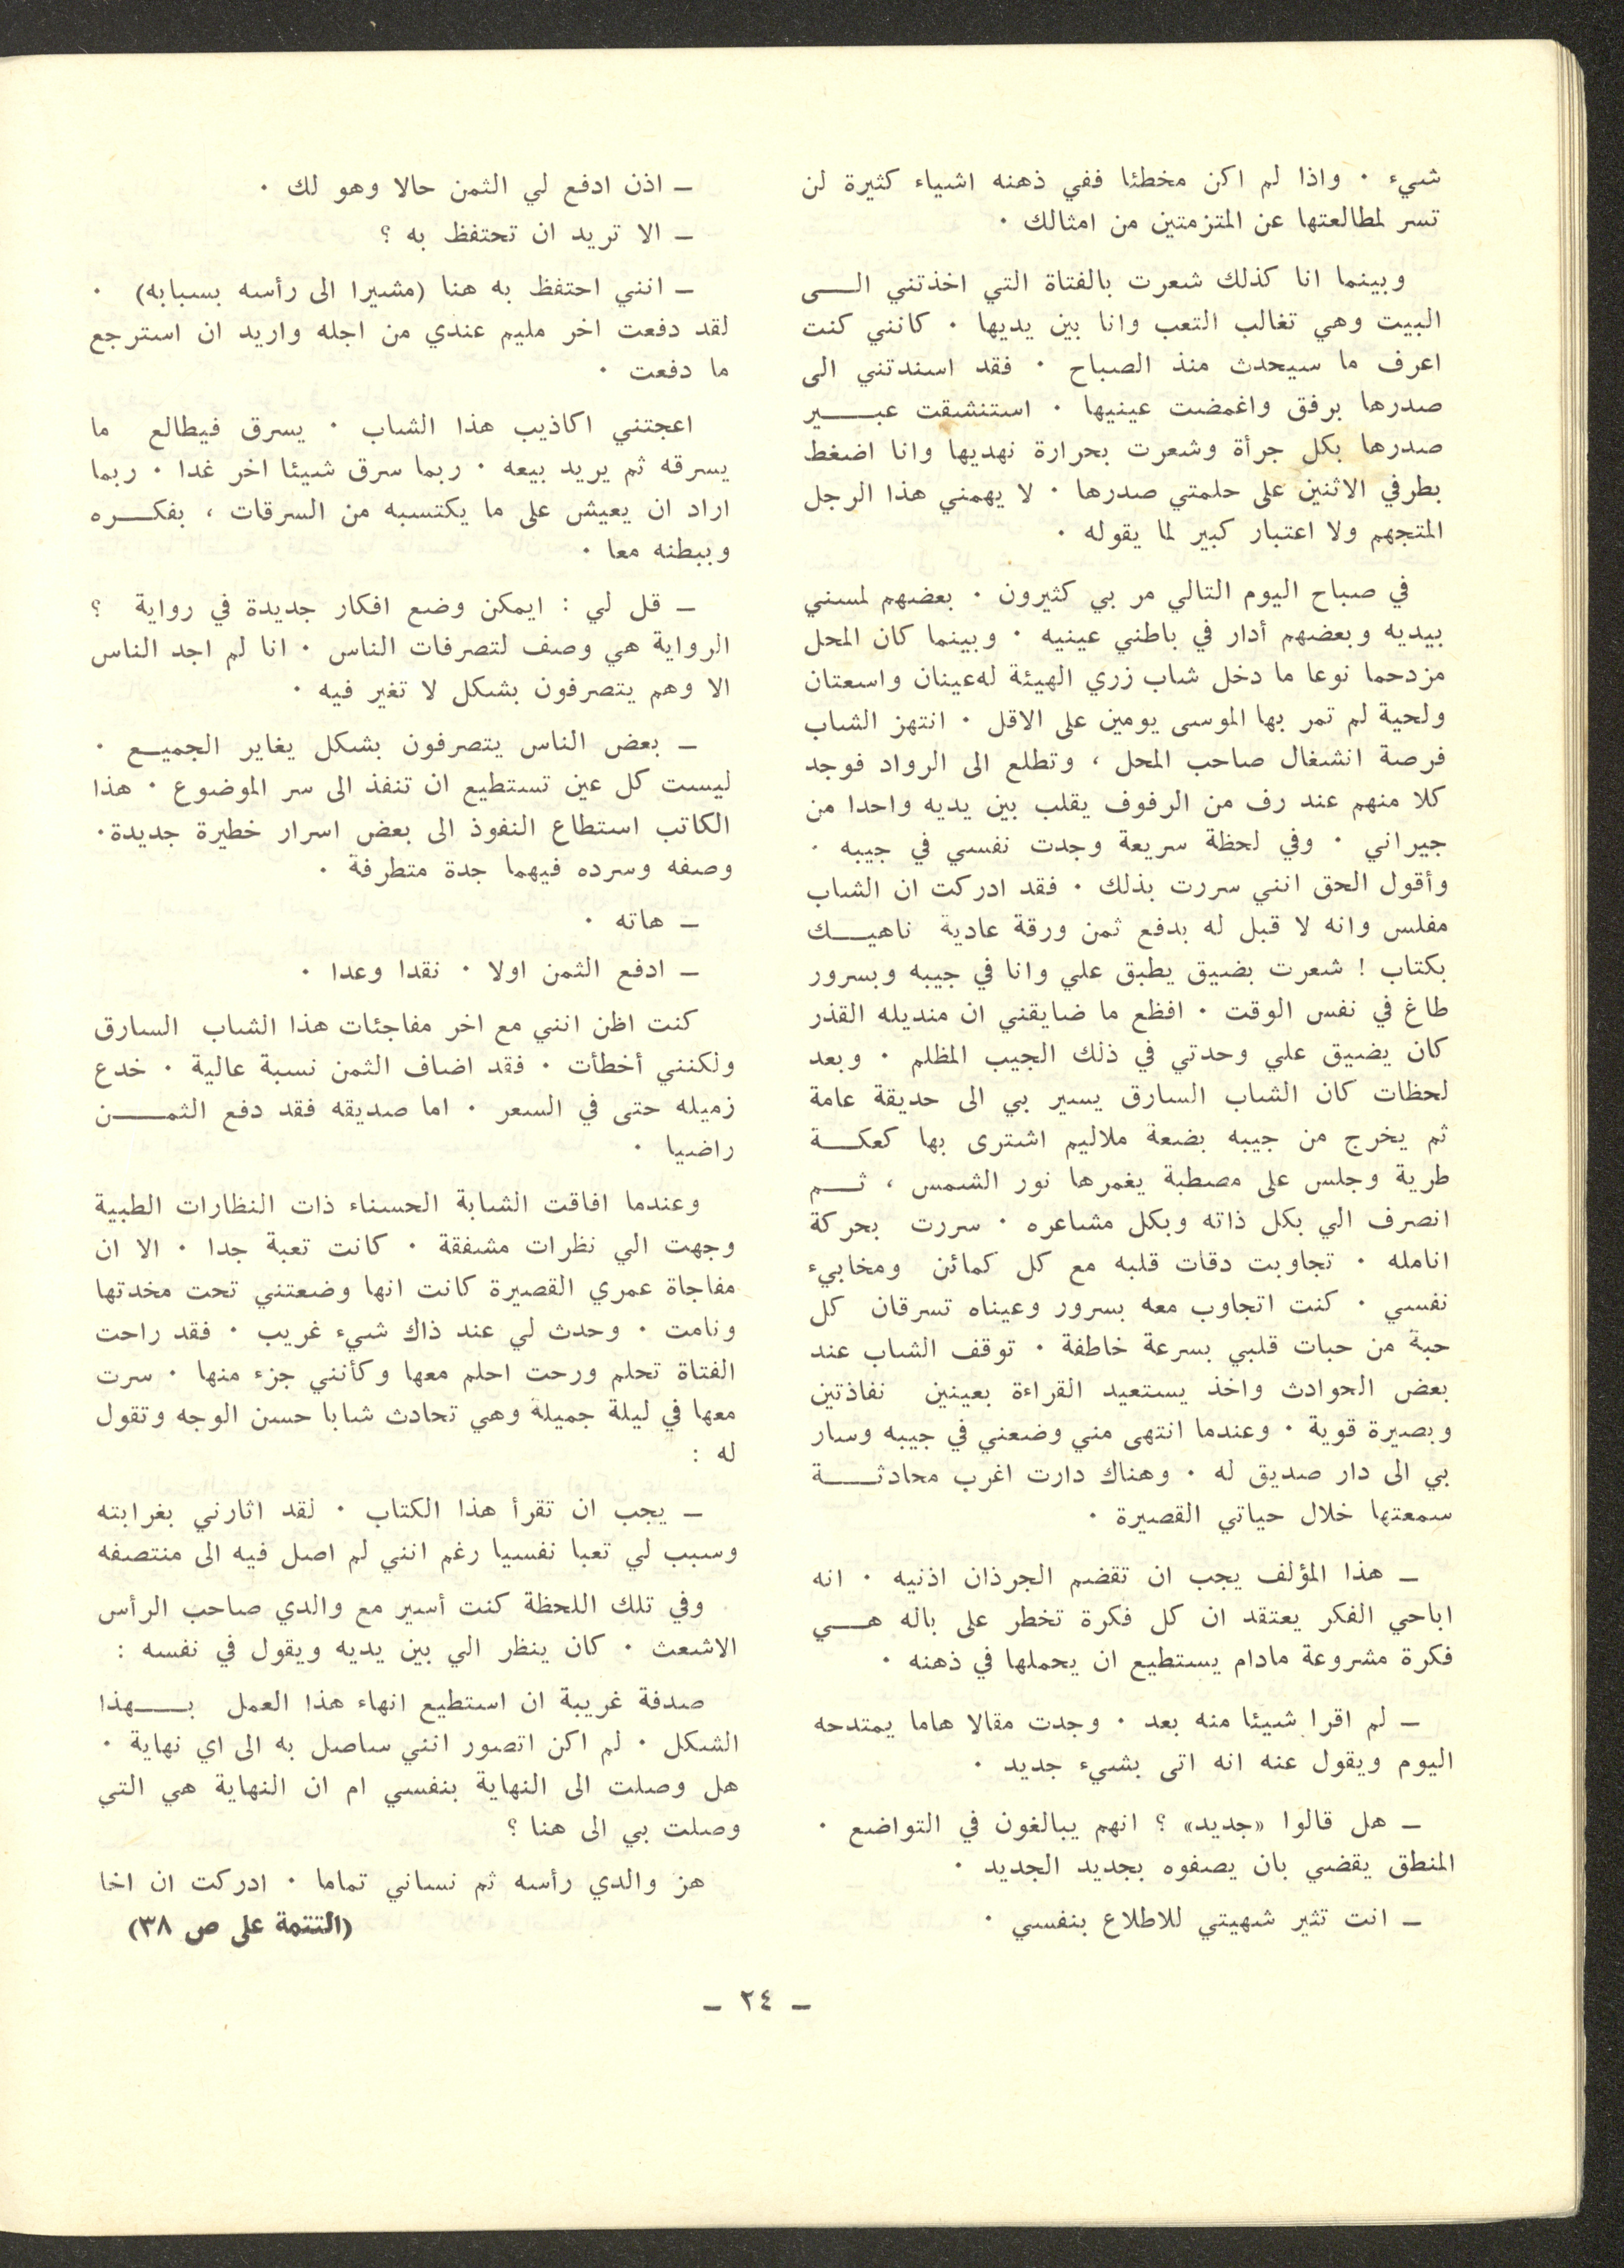 شيء . واذا لم اكن مخطئا ففي ذهنه اشياء كثيرة لن
تسر لمطالعتها عن المتزمتين من امثالك .
وبينما انا كذلك شعرت بالفتاة التي اخذتني الـــى
البيت وهي تغالب التعب وانا بين يديها . كانني كنت
اعرف ما سيحدث منذ الصباح . فقد اسندتني الى
صدرها برفق واغمضت عينيها . استنشقت عبــــير
صدرها بكل جرأة وشعرت بحرارة نهديها وانا اضغط
بطرفي الاثنين على حلمتي صدرها . لا يهمني هذا الرجل
المتجهم ولا اعتبار كبير لما يقوله .
في صباح اليوم التالي مر بي كثيرون . بعضهم لمسني
بيديه وبعضهم أدار في باطني عينيه . وبينما كان المحل
مزدحما نوعا ما دخل شاب زري الهيئة له عينان واسعتان
ولحية لم تمر بها الموسى يومين على الاقل . انتهز الشاب
فرصة انشغال صاحب المحل ، وتطلع الى الرواد فوجد
كلا منهم عند رف من الرفوف يقلب بين يديه واحدا من
جيراني . وفي لحظة سريعة وجدت نفسي في جيبه .
وأقول الحق انني سررت بذلك . فقد ادركت ان الشاب
مفلس وانه لا قبل له بدفع ثمن ورقة عادية ناهيـــك
بكتاب ! شعرت بضيق يطبق علي وانا في جيبه وبسرور
طاغ في نفس الوقت . افظع ما ضايقني ان منديله القذر
كان يضيق علي وحدتي في ذلك الجيب المظلم . وبعد
لحظات كان الشاب السارق يسير بي الى حديقة عامة
ثم يخرج من جيبه بضعة ملاليم اشترى بها كعكـــة
طرية وجلس على مصطبة يغمرها نور الشمس ، ثـــم
انصرف الي بكل ذاته وبكل مشاعره . سررت بحركة
انامله . تجاوبت دقات قلبه مع كل كمائن ومخابيء
نفسي . كنت اتجاوب معه بسرور وعيناه تسرقان كل
حبة من حبات قلبي بسرعة خاطفة . توقف الشاب عند
بعض الحوادث واخذ يستعيد القراءة بعينين نفاذتين
وبصيرة قوية . وعندما انتهى مني وضعني في جيبه وسار
بي الى دار صديق له . وهناك دارت اغرب محادثـــة
سمعتها خلال حياتي القصيرة .
ــ هذا المؤلف يجب ان تقضم الجرذان اذنيه . انه
اباحي الفكر يعتقد ان كل فكرة تخطر على باله هـــي
فكرة مشروعة مادام يستطيع ان يحملها في ذهنه .
ــ لم اقرا شيئا منه بعد . وجدت مقالا هاما يمتدحه
اليوم ويقول عنه انه اتى بشيء جديد .
ــ هل قالوا «جديد» ؟ انهم يبالغون في التواضع .
المنطق يقضي بان يصفوه بجديد الجديد .
ــ انت تثير شهيتي للاطلاع بنفسي .
ــ اذن ادفع لي الثمن حالا وهو لك .
ــ الا تريد ان تحتفظ به ؟
ــ انني احتفظ به هنا (مشيرا الى رأسه بسبابه) .
لقد دفعت اخر مليم عندي من اجله واريد ان استرجع
ما دفعت .
اعجتني اكاذيب هذا الشاب . يسرق فيطالع ما
يسرقه ثم يريد بيعه . ربما سرق شيئا اخر غدا . ربما
اراد ان يعيش على ما يكتسبه من السرقات ، بفكـــره
وببطنه معا .
ــ قل لي : ايمكن وضع افكار جديدة في رواية ؟
الرواية هي وصف لتصرفات الناس . انا لم اجد الناس
الا وهم يتصرفون بشكل لا تغير فيه .
ــ بعض الناس يتصرفون بشكل يغاير الجميـــع .
ليست كل عين تستطيع ان تنفذ الى سر الموضوع . هذا
الكاتب استطاع النفوذ الى بعض اسرار خطيرة جديدة.
وصفه وسرده فيهما جدة متطرفة .
ــ هاته .
ــ ادفع الثمن اولا . نقدا وعدا .
كنت اظن انني مع اخر مفاجئات هذا الشاب السارق
ولكنني أخطأت . فقد اضاف الثمن نسبة عالية . خدع
زميله حتى في السعر . اما صديقه فقد دفع الثمـــن
راضيا .
وعندما افاقت الشابة الحسناء ذات النظارات الطبية
وجهت الي نظرات مشفقة . كانت تعبة جدا . الا ان
مفاجاة عمري القصيرة كانت انها وضعتني تحت مخدتها
ونامت . وحدث لي عند ذاك شيء غريب . فقد راحت
الفتاة تحلم ورحت احلم معها وكأنني جزء منها . سرت
معها في ليلة جميلة وهي تحادث شابا حسن الوجه وتقول
له :
ــ يجب ان تقرأ هذا الكتاب . لقد اثارني بغرابته
وسبب لي تعبا نفسيا رغم انني لم اصل فيه الى منتصفه
وفي تلك اللحظة كنت أسير مع والدي صاحب الرأس
الاشعث . كان ينظر الي بين يديه ويقول في نفسه :
صدفة غريبة ان استطيع انهاء هذا العمل بـــهذا
الشكل . لم اكن اتصور انني ساصل به الى اي نهاية .
هل وصلت الى النهاية بنفسي ام ان النهاية هي التي
وصلت بي الى هنا ؟
هز والدي رأسه ثم نساني تماما . ادركت ان اخا
(التتمة على ص ٣٨)
ــ ٢٤ ــ